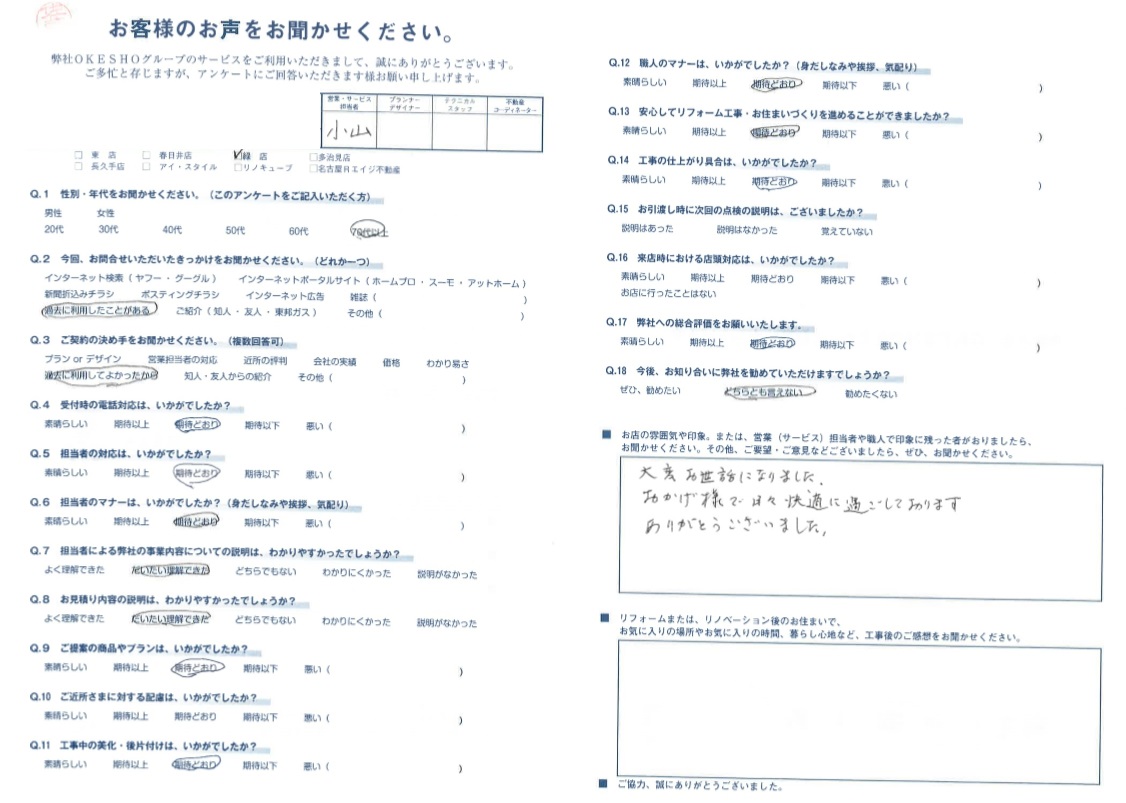 お客様のお声をお聞かせください。
弊社OKESHOグループのサービスをご利用いただきまして、誠にありがとうございます。
ご多忙と存じますが、アンケートにご回答いただきます様お願い申し上げます。
営業・サービス担当者 プランナーデザイナー テクニカルスタッフ 不動産コーディネーター
小山
□ 東 店 □ 春日井店 ☑緑 店 □多治見店
□ 長久手店 □ アイ・スタイル □リノキューブ □名古屋Rエイジ不動産
Q.1 性別・年代をお聞かせください。(このアンケートをご記入いただく方)
男性 女性
20代 30代 40代 50代 60代 70代以上
Q.2 今回、お問合せいただいたきっかけをお聞かせください。(どれか一つ)
インターネット検索(ヤフー・グーグル) インターネットポータルサイト(ホームプロ・スーモ・アットホーム)
新聞折込みチラシ ポスティングチラシ インターネット広告 雑誌( )
過去に利用したことがある ご紹介(知人・友人・東邦ガス) その他( )
Q.3 ご契約の決め手をお聞かせください。(複数回答可)
プラン or デザイン 営業担当者の対応 近所の評判 会社の実績 価格 わかり易さ
過去に利用してよかったから 知人・友人からの紹介 その他( )
Q.4 受付時の電話対応は、いかがでしたか?
素晴らしい 期待以上 期待どおり 期待以下 悪い( )
Q.5 担当者の対応は、いかがでしたか?
素晴らしい 期待以上 期待どおり 期待以下 悪い( )
Q.6 担当者のマナーは、いかがでしたか?(身だしなみや挨拶、気配り)
素晴らしい 期待以上 期待どおり 期待以下 悪い( )
Q.7 担当者による弊社の事業内容についての説明は、わかりやすかったでしょうか?
よく理解できた だいたい理解できた どちらでもない わかりにくかった 説明がなかった
Q.8 お見積り内容の説明は、わかりやすかったでしょうか?
よく理解できた だいたい理解できた どちらでもない わかりにくかった 説明がなかった
Q.9 ご提案の商品やプランは、いかがでしたか?
素晴らしい 期待以上 期待どおり 期待以下 悪い( )
Q.10 ご近所さまに対する配慮は、いかがでしたか?
素晴らしい 期待以上 期待どおり 期待以下 悪い( )
Q.11 工事中の美化・後片付けは、いかがでしたか?
素晴らしい 期待以上 期待どおり 期待以下 悪い( )
Q.12 職人のマナーは、いかがでしたか?(身だしなみや挨拶、気配り)
素晴らしい 期待以上 期待どおり 期待以下 悪い( )
Q.13 安心してリフォーム工事・お住まいづくりを進めることができましたか?
素晴らしい 期待以上 期待どおり 期待以下 悪い( )
Q.14 工事の仕上がり具合は、いかがでしたか?
素晴らしい 期待以上 期待どおり 期待以下 悪い( )
Q.15 お引渡し時に次回の点検の説明は、ございましたか?
説明はあった 説明はなかった 覚えていない
Q.16 来店時における店頭対応は、いかがでしたか?
素晴らしい 期待以上 期待どおり 期待以下 悪い( )
お店に行ったことはない
Q.17 弊社への総合評価をお願いいたします。
素晴らしい 期待以上 期待どおり 期待以下 悪い( )
Q.18 今後、お知り合いに弊社を勧めていただけますでしょうか?
ぜひ、勧めたい どちらとも言えない 勧めたくない
■ お店の雰囲気や印象。または、営業(サービス)担当者や職人で印象に残った者がおりましたら、
お聞かせください。その他、ご要望・ご意見などございましたら、ぜひ、お聞かせください。
大変お世話になりました。
おかげ様で日々快適に過ごしております
ありがとうございました。
■ リフォームまたは、リノベーション後のお住まいで、
お気に入りの場所やお気に入りの時間、暮らし心地など、工事後のご感想をお聞かせください。
■ ご協力、誠にありがとうございました。